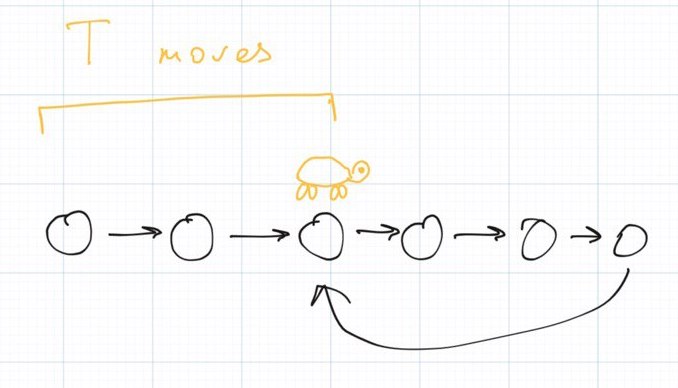 T moves